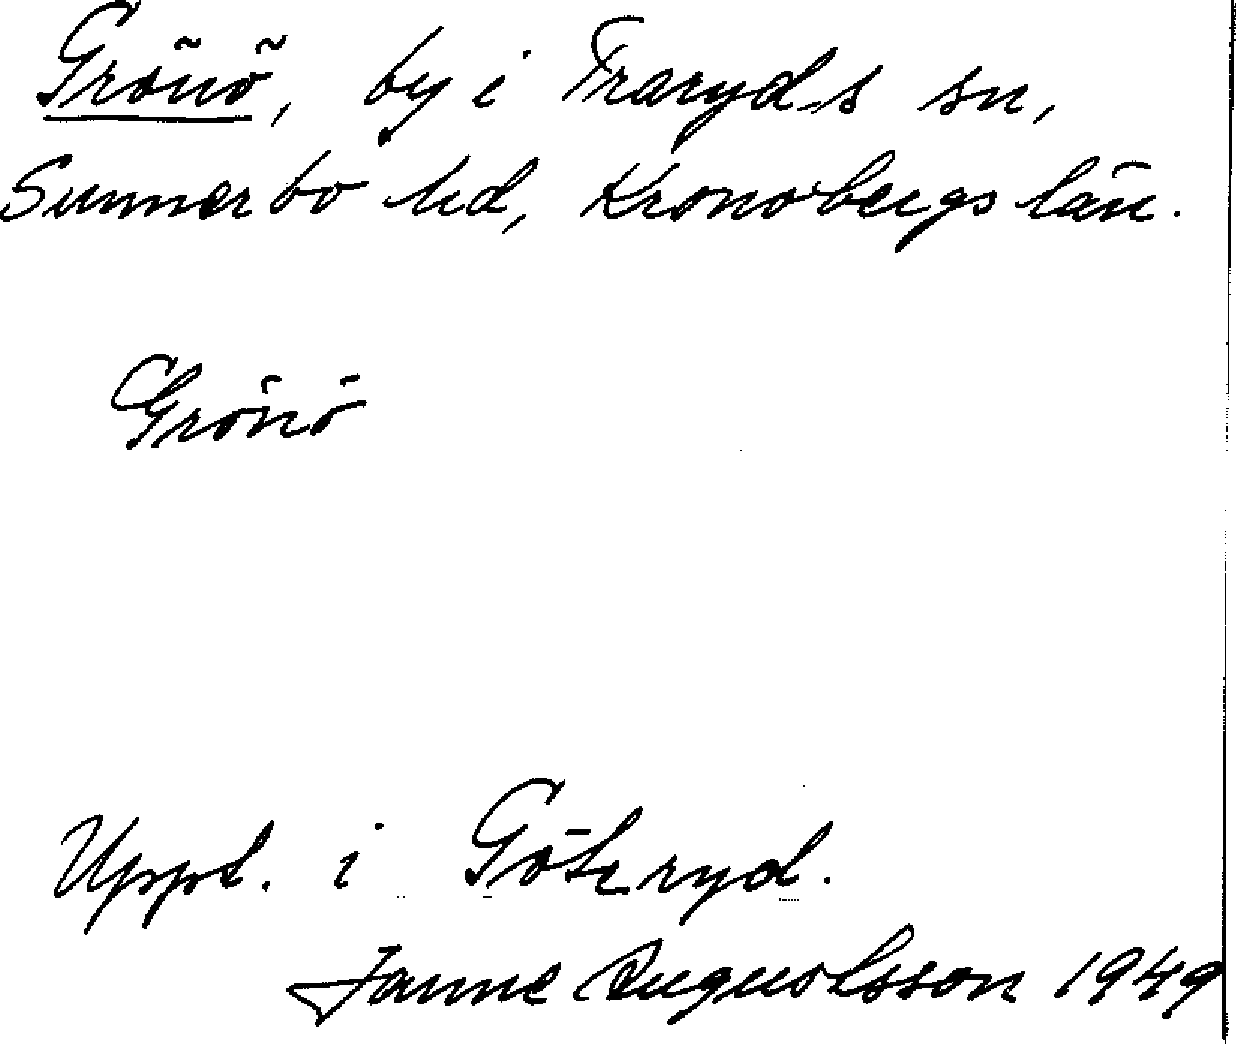 Grönö, by i Traryds sn,
Sunnerbo hd, Kronobergs län.
Grönö
Uppt. i Göteryd.
Janne Augustsson 1949